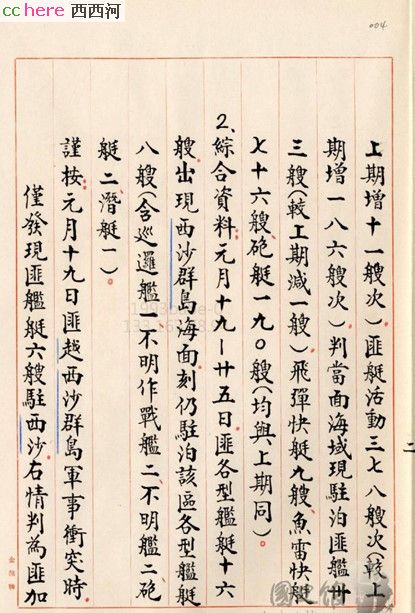 cchere 西西河
004
上期增十一艘次）匪艇活動三七八艘次（較上
期增一八六艘次）判當面海域現駐泊匪艦卅
三艘（較上期減一艘）飛彈快艇九艘魚雷快艇
七十六艘砲艇一九〇艘（均與上期同）。
2、綜合資料元月十九—廿五日匪各型艦艇十六
艘出現西沙群島海面刻仍駐泊該區各型艦艇
八艘（含巡邏艦一不明作戰艦二不明艦二砲
艇二潛艇一）
謹按元月十九日匪越西沙群島軍事衝突時
僅發現匪艦艇六艘駐西沙。右情判為匪加